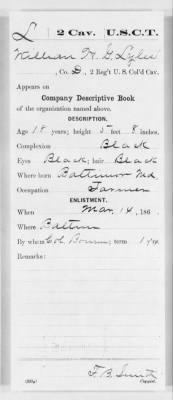 L | 2 Cav. | U.S.C.T.
William H. G. Lyles
, Co. D, 2 Reg't U. S. Col'd Cav.
Appears on
Company Descriptive Book
of the organization named above.
DESCRIPTION.
Age 18 years; height 5 feet 8 inches.
Complexion Black
Eyes Black; hair Black
Where born Baltimore Md.
Occupation Farmer
ENLISTMENT.
When Mar. 14, 186 .
Where Baltim
By whom Col. ; term 1 y'rs.
Remarks:
F. B. Smith
Copyist.